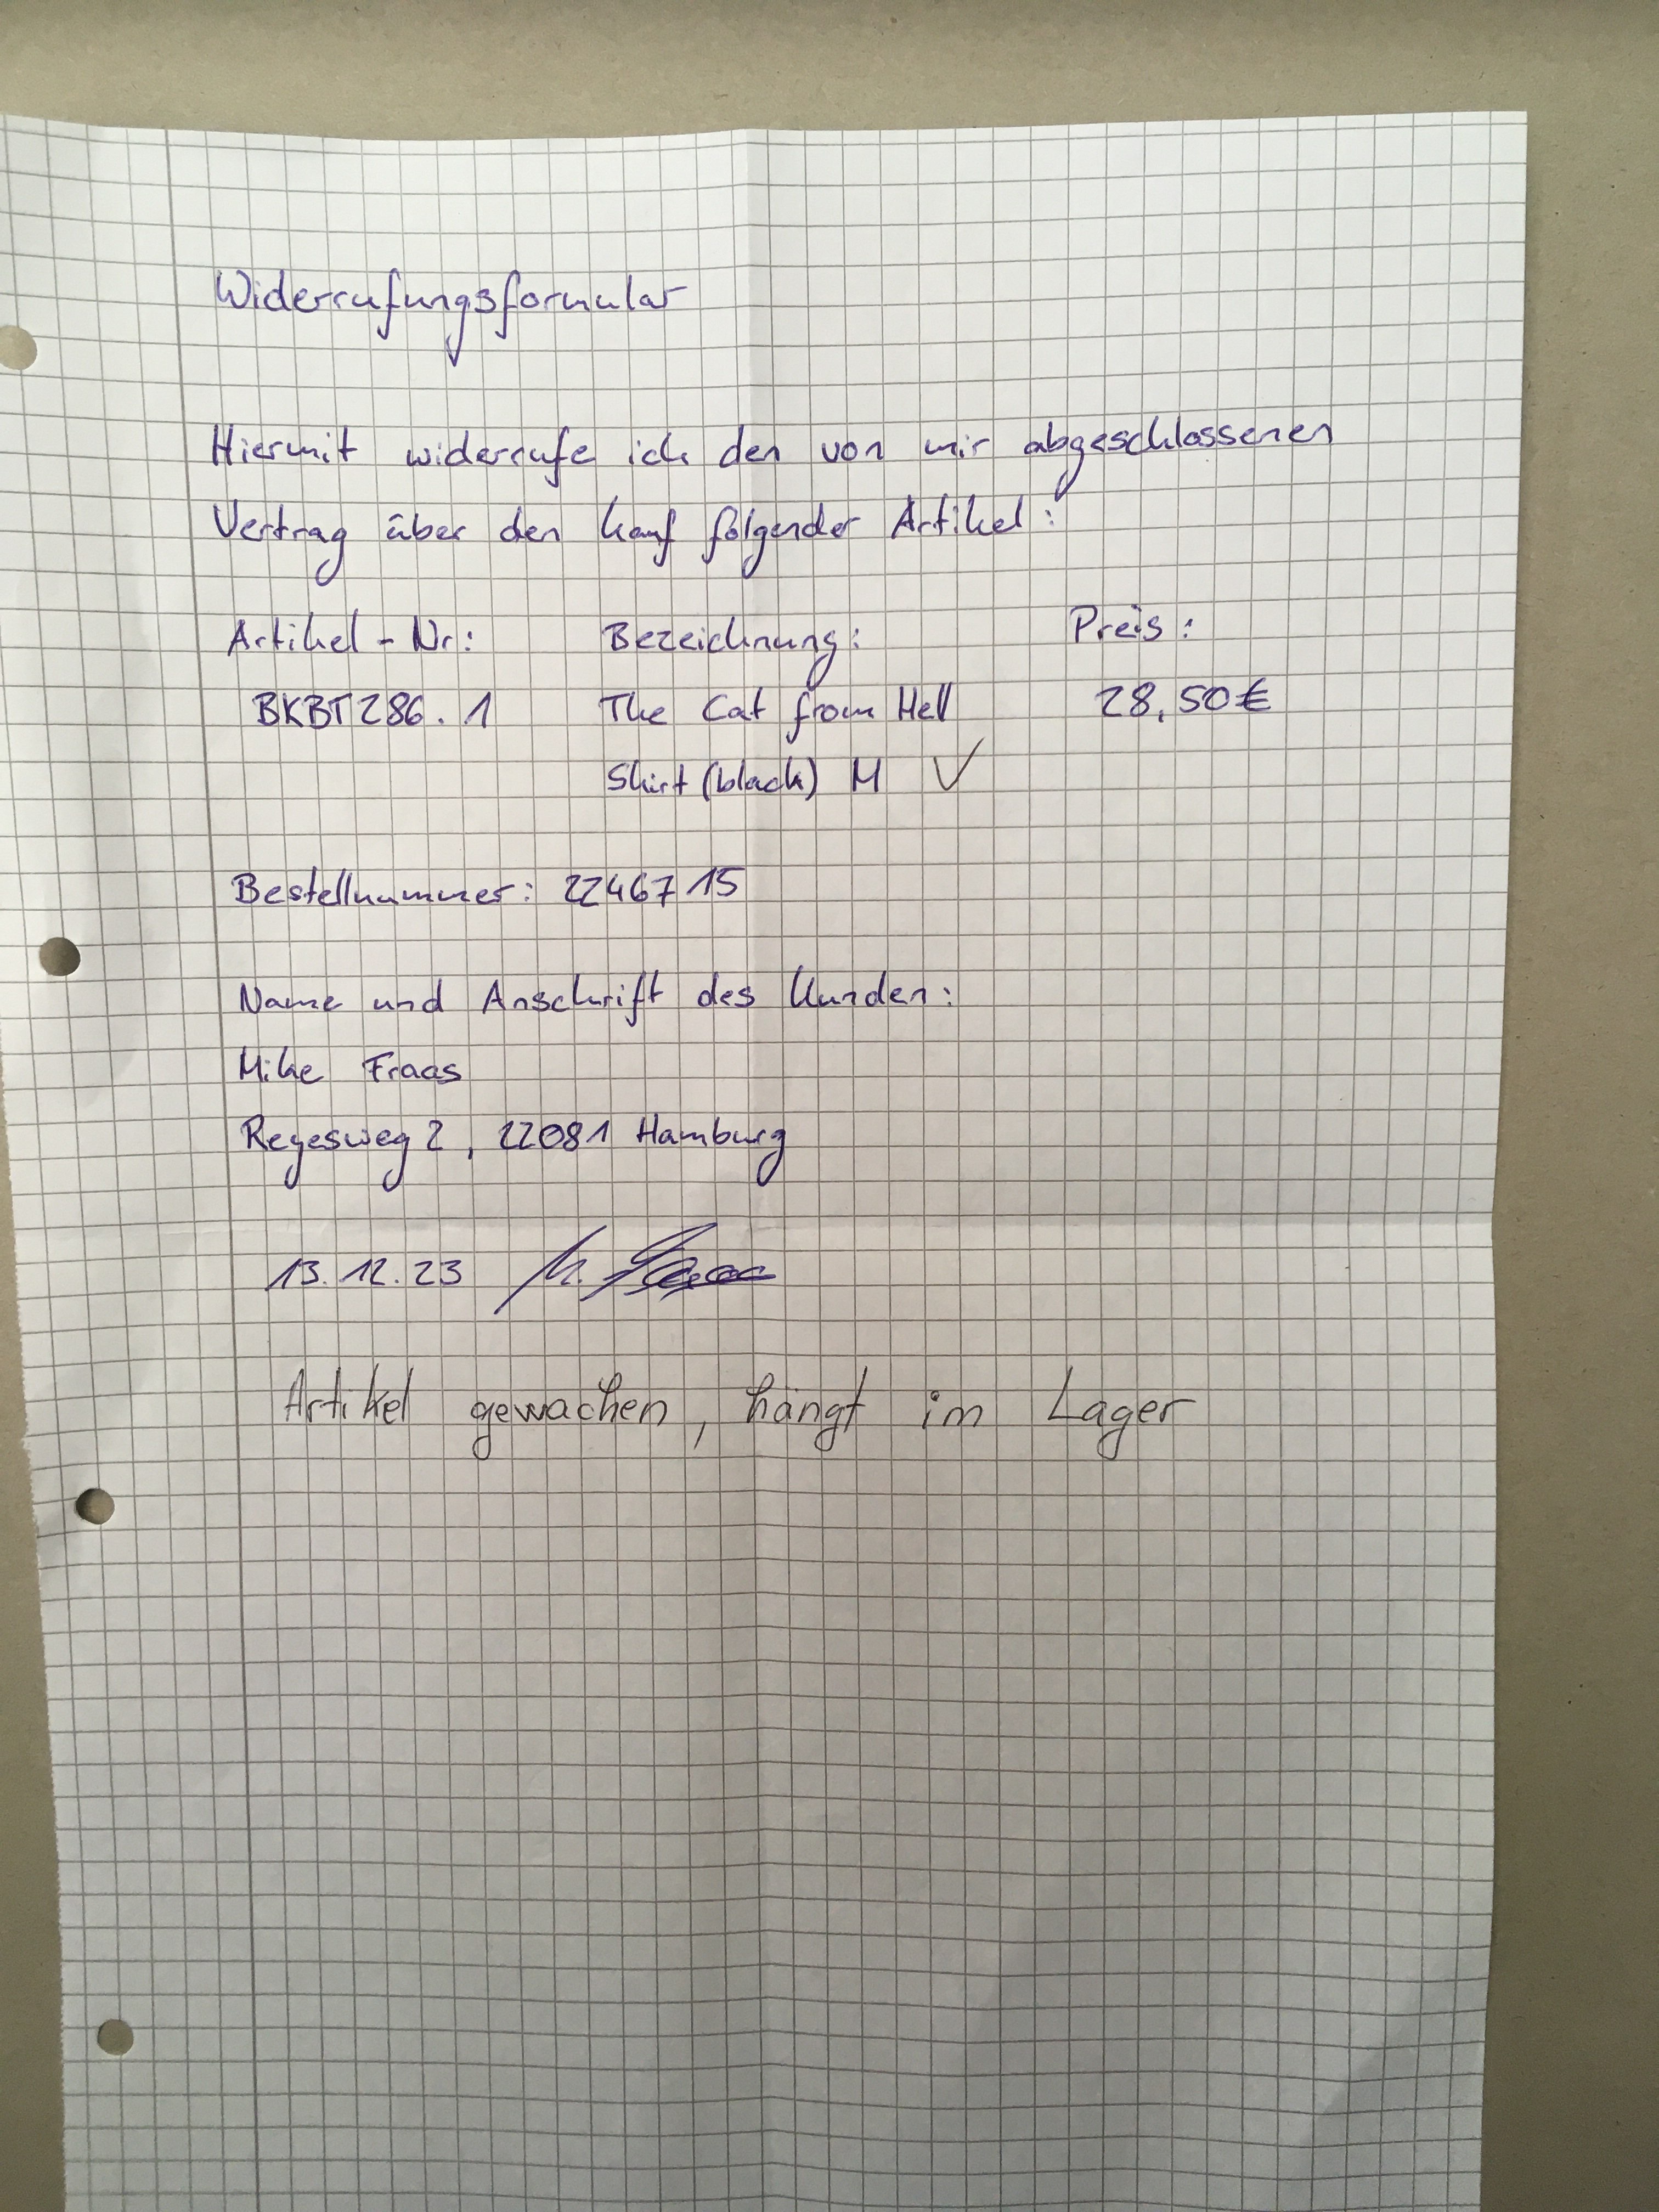 Widerrufungsformular
Hiermit widerrufe ich den von mir abgeschlossenen
Vertrag über den Kauf folgender Artikel:
Artikel-Nr: Bezeichnung: Preis:
BKBT286.1 The Cat from Hell 28,50€
Shirt (black) M ✓
Bestellnummer: 2246715
Name und Anschrift des Kunden:
Mike Fraas
Reyesweg 2, 22081 Hamburg
13.12.23 M. Fraas
Artikel gewachen, hängt im Lager